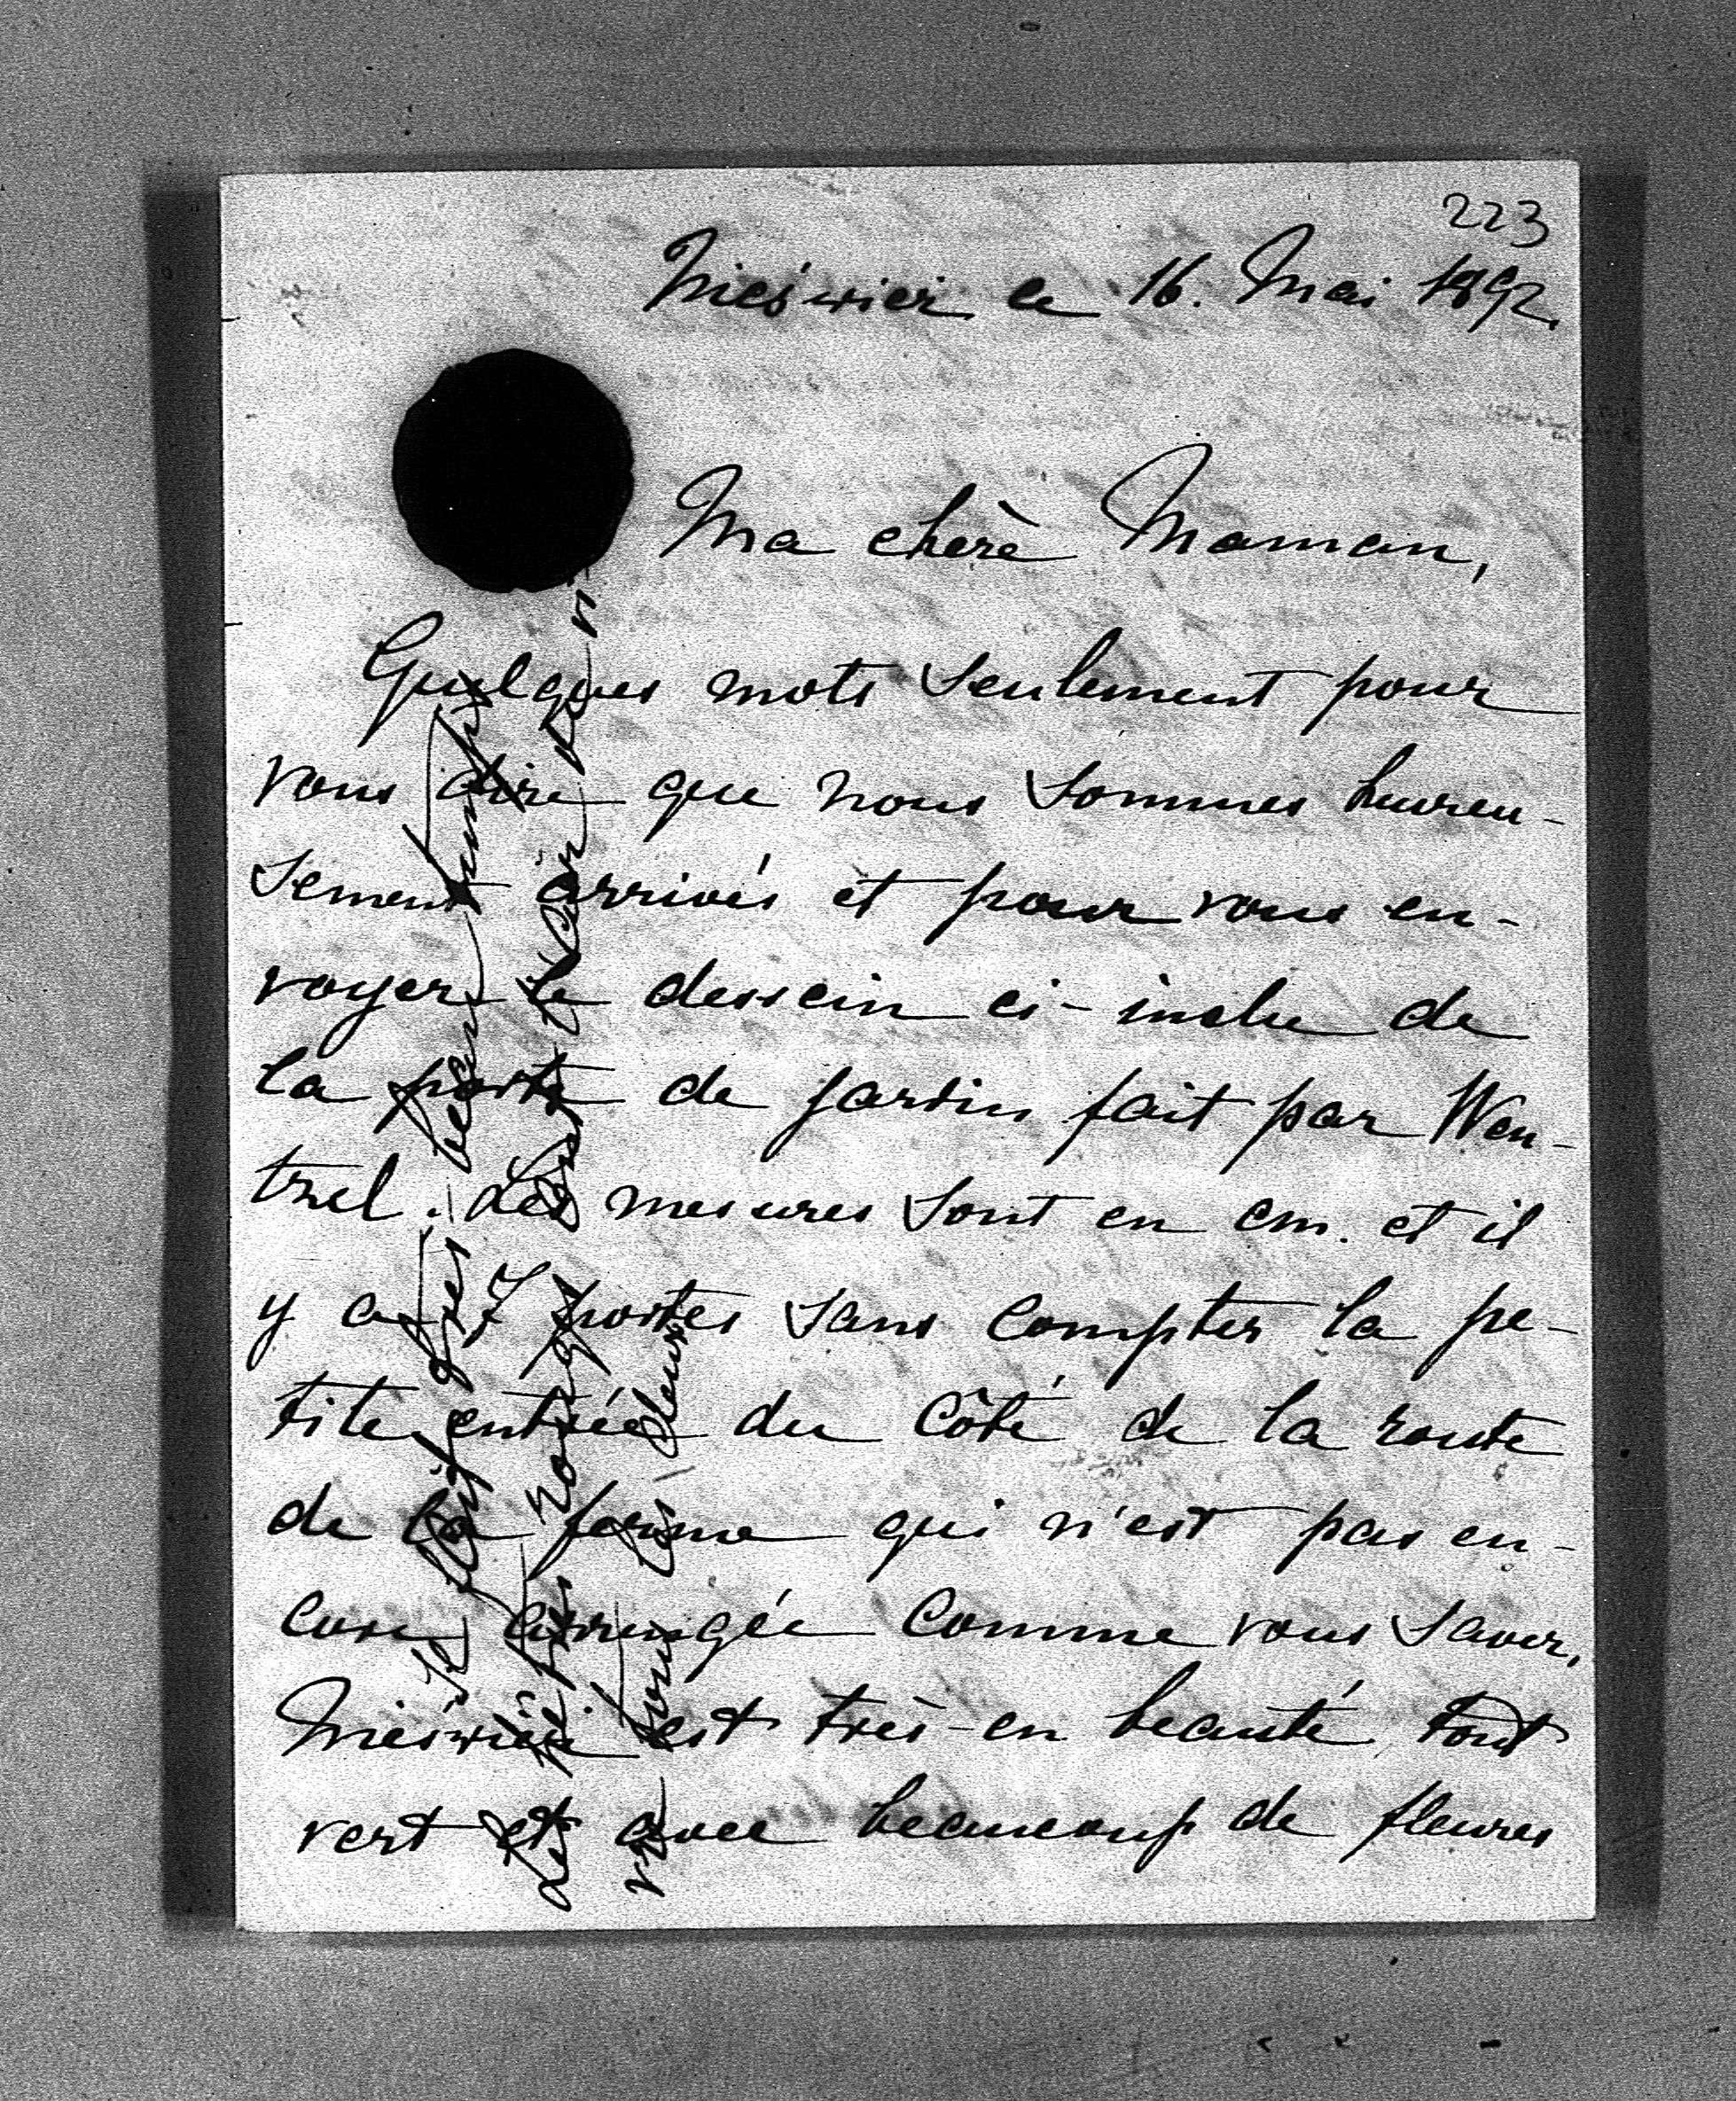 223
Nieśwież le 16. Mai 1892.
Ma chère Maman,
Quelques mots seulement pour
vous dire que nous sommes heureu-
sement arrivés et pour vous en-
voyer le dessein ci-inclu de
la porte de jardin fait par Wen-
trel. Les mesures sont en cm. et il
y a 7 portes sans compter la pe-
tite entrée du côté de la route
de la ferme qui n'est pas en-
core arrangée comme vous savez.
Nieśwież est très-en beauté tout
vert et avec beaucoup de fleures
Il fait très beau temps